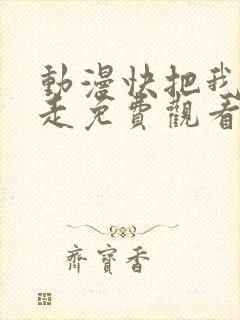 動漫快把我
走免費觀看
齊寶香